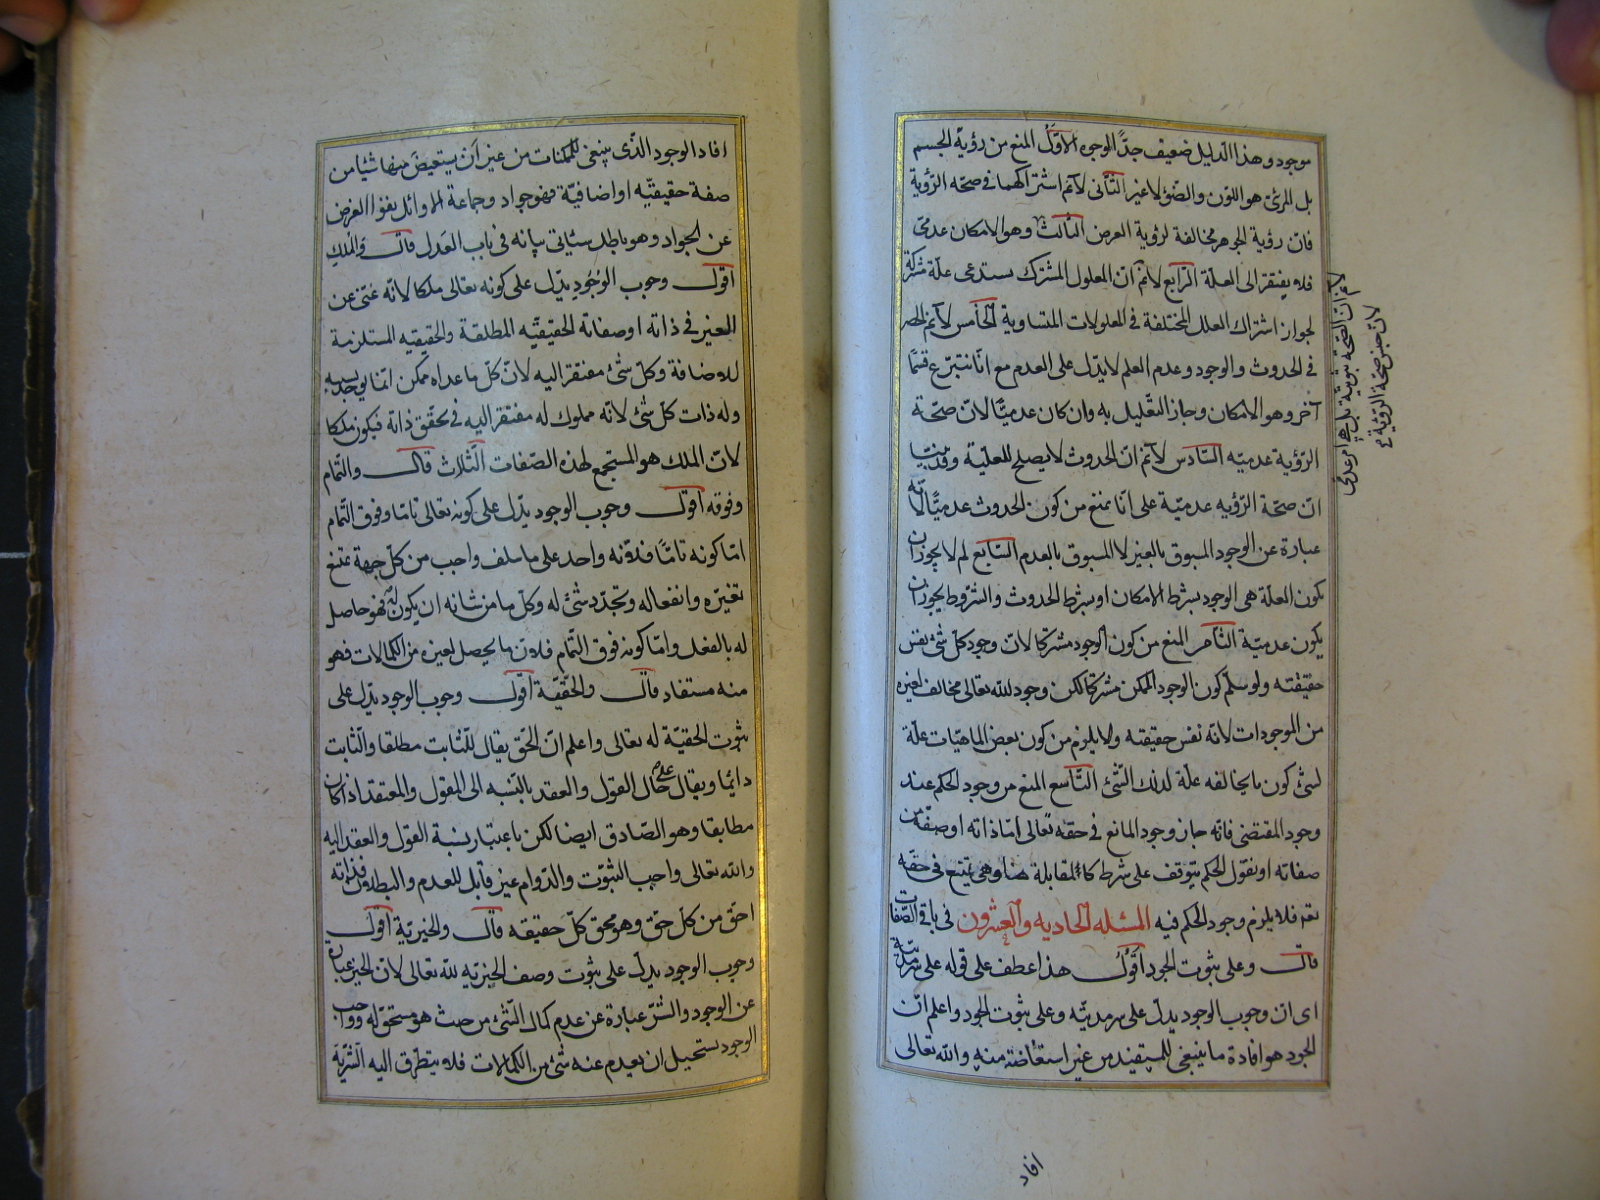 موجود وهذا الدليل ضعيف جدّا لوجوه الاوّل المنع من رؤية الجسم
بل المرئى هو اللون والضوء لا غير الثانى لا نم اشتراكهما فى صحة الرؤية
فان رؤية الجوهر مخالفة لرؤية العرض الثالث وهو الامكان عدمى
فلا يفتقر الى العلة الرابع لا نم ان المعلول المشترك يستدعى علة مشتركة
لجواز اشتراك العلل المختلفة فى المعلولات المتساوية الخامس لا نم الحصر
فى الحدوث والوجود وعدم العلم لا يدل على العدم مع انا نتبرع قسما
آخر وهو الامكان وجاز التعليل به وان كان عدميا لان صحة
الرؤية عدميه السادس لا نم ان الحدوث لا يصلح للعلية وقد بينا
ان صحة الرؤيه عدمية على انا نمنع من كون الحدوث عدميا لانه
عبارة عن الوجود المسبوق بالغير لا المسبوق بالعدم السابع لم لا يجوز ان
يكون العلة هى الوجود بشرط الامكان او بشرط الحدوث والشروط يجوز ان
يكون عدمية الثامن المنع من كون الوجود مشتركا لان وجود كل شئ نفس
حقيقته ولو سلم كون الوجود الممكن مشتركا لكن وجود الله تعالى مخالف لغيره
من الموجودات لانه نفس حقيقته ولا يلزم من كون بعض الماهيات علة
لشئ كون ما يخالفه علة لذلك الشئ التاسع المنع من وجود الحكم عند
وجود المقتضى فانه جاز وجود المانع فى حقه تعالى اما ذاته او صفة من
صفاته او نقول الحكم يتوقف على شرط كالمقابلة هنا وهى تمتنع فى حقه
تعم فلا يلزم وجود الحكم فيه المسئله الحاديه والعشرون فى باقى الصفات
قال وعلى ثبوت الجود اقول هذا عطف على قوله على سرمديته
اى ان وجوب الوجود يدل على سرمديته وعلى ثبوت الجود واعلم ان
الجود هو افادة ما ينبغى للمستفيد من غير استعاضة منه والله تعالى
لا نم ان الصحة ثبوتية بل هى امر عدمى
لان جنس صحة الرؤية
افاد
افاد الوجود الذى ينبغى للممكنات من غير ان يستعيض منها شيئا من
صفة حقيقيه او اضافية فهو جواد وجماعة الاوائل نفوا الغرض
عن الجواد وهو باطل سيأتى بيانه فى باب العدل قال والملك
اقول وجوب الوجود يدل على كونه تعالى ملكا لانه غنى عن
الغير فى ذاته او صفاته الحقيقيه المطلقة والحقيقيه المستلزمة
للاضافة وكل شئ مفتقر اليه لان كل ما عداه ممكن انما يوجد بسببه
وله ذات كل شئ لانه مملوك له مفتقر اليه فى تحقق ذاته فيكون ملكا
لان الملك هو المستجمع لهذه الصفات الثلاث قال والتمام
وفوقه اقول وجوب الوجود يدل على كونه تعالى تاما وفوق التمام
اما كونه تاما فلانه واحد على ما سلف واجب من كل جهة تمتنع
تغيره وانفعاله وتجدد شئ له وكل ما من شانه ان يكون له فهو حاصل
له بالفعل واما كونه فوق التمام فلان ما يحصل لغيره من الكمالات فهو
منه مستفاد قال والحقية اقول وجوب الوجود يدل على
ثبوت الحقية له تعالى واعلم ان الحق يقال للثابت مطلقا والثابت
دائما ويقال على حال القول والعقد بالنسبه الى المقول والمعتقد اذا كان
مطابقا وهو الصادق ايضا لكن باعتبار نسبة القول والعقد اليه
والله تعالى واجب الثبوت والدوام غير قابل للعدم والبطلان فذاته
احق من كل حق وهو محق كل حقيقه قال والخيرية اقول
وجوب الوجود يدل على ثبوت وصف الخيريه لله تعالى لان الخير عبارة
عن الوجود والشر عبارة عن عدم كمال الشئ من حيث هو مستحق له وواجب
الوجود يستحيل ان يعدم عنه شئ من الكمالات فلا يتطرق اليه الشرية